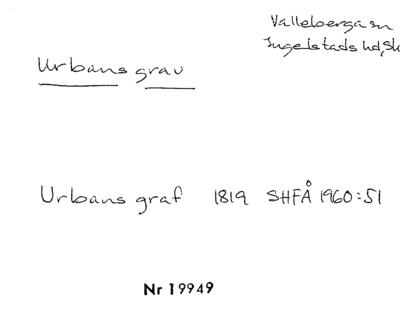 Vallebergasn
Ingelstads hd, Sk
Urbans grav
Urbans graf 1819 SHFÅ 1960:51
Nr 19949